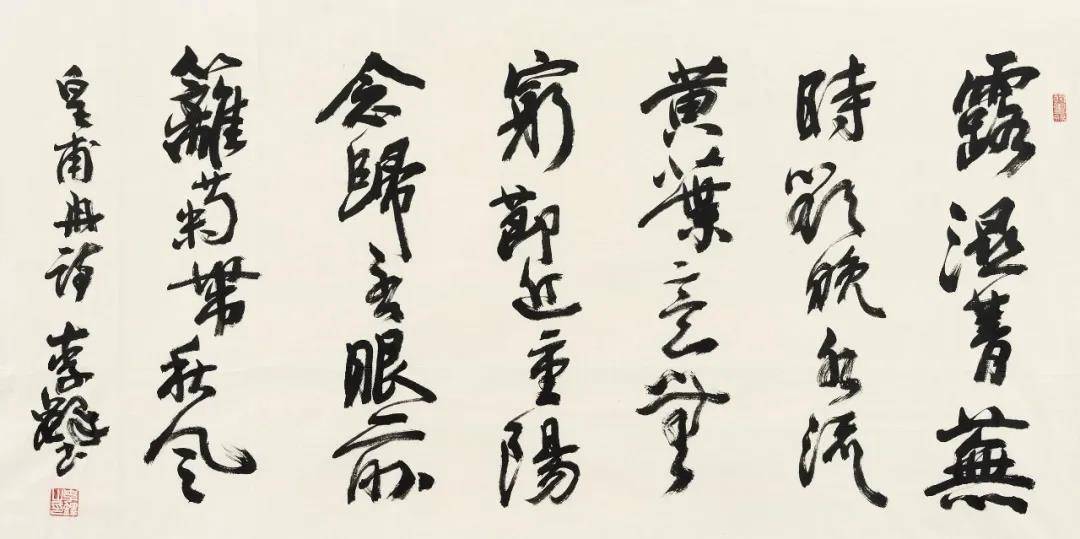 露濕菁蕪
時欲晚水流
黃葉意無
窮節近重陽
念歸否眼前
籬菊帶秋風
皇甫冉詩 李鐸